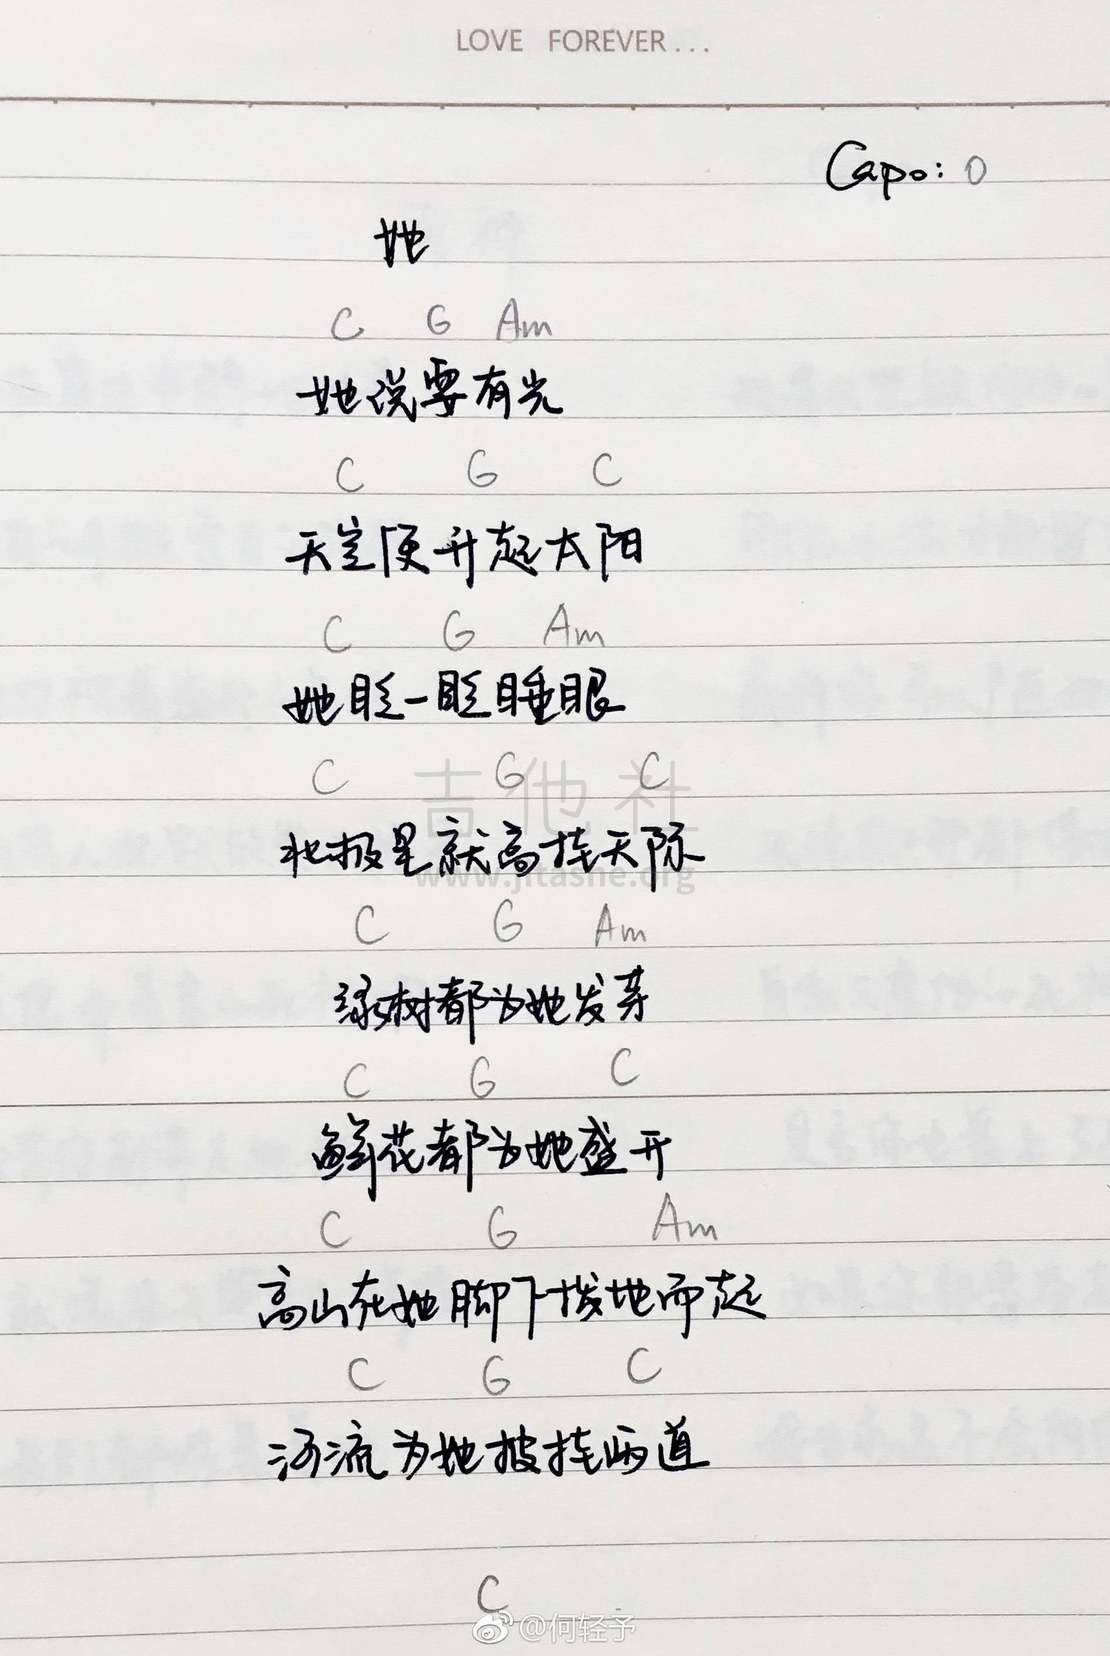 LOVE FOREVER...
Capo: 0
她
C G Am
她说要有光
C G C
天空便升起太阳
C G Am
她眨一眨睡眼
C G C
吉他社
北极星就高挂天际
www.jitashe.org
C G Am
绿树都为她发芽
C G C
鲜花都为她盛开
C G Am
高山在她脚下拔地而起
C G C
河流为她披挂两道
C
@何轻予